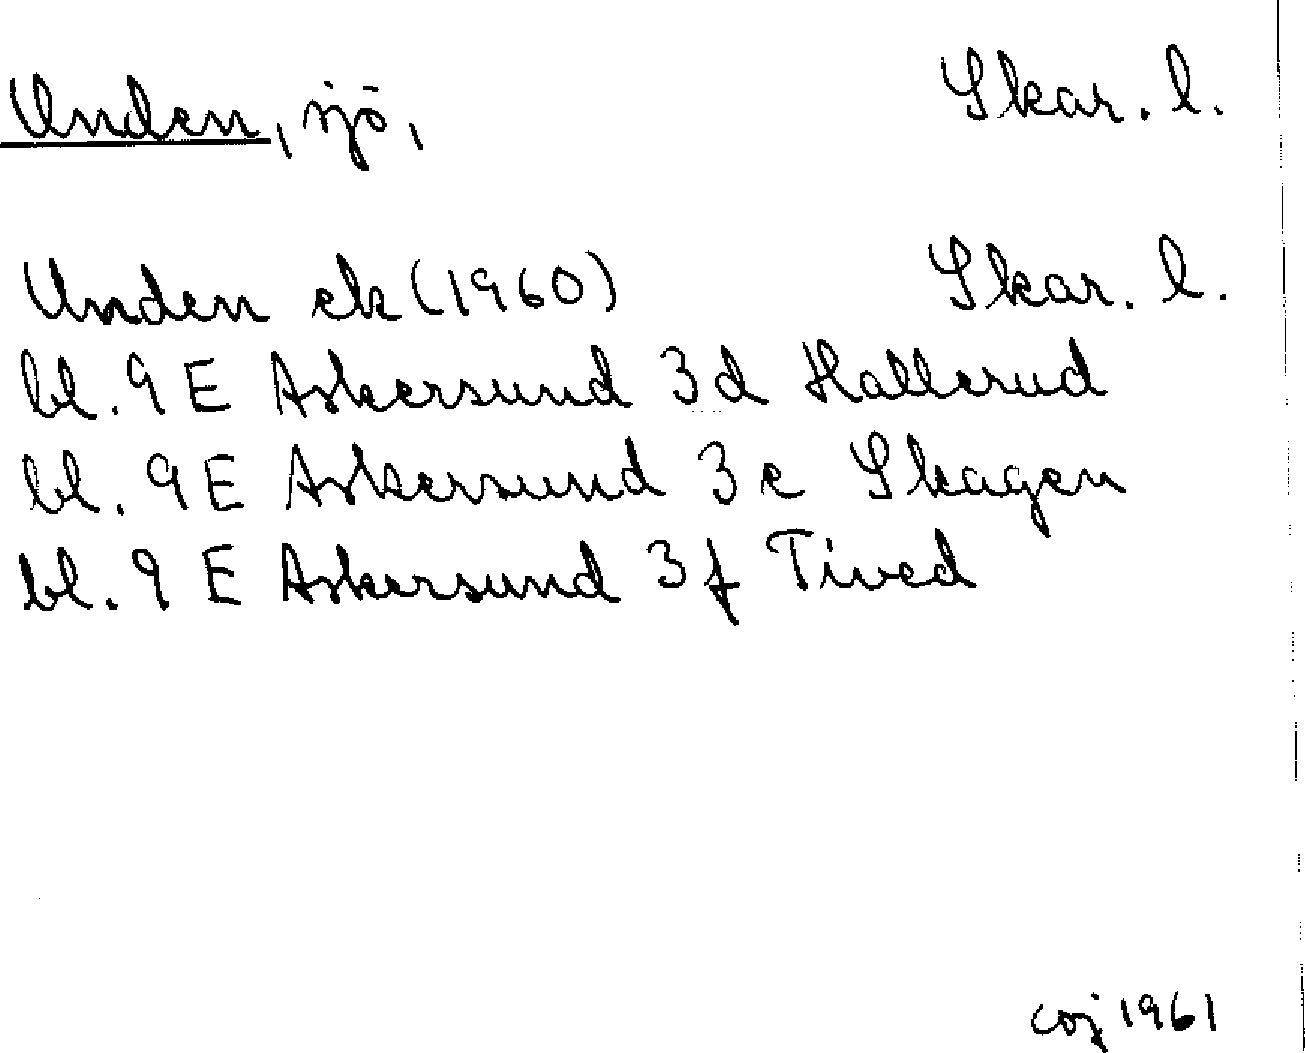 Unden, sjö, Skar. l.
Unden ek (1960) Skar. l.
bl. 9 E Askersund 3d Hallerud
bl. 9 E Askersund 3e Skagen
bl. 9 E Askersund 3f Tived
coj 1961